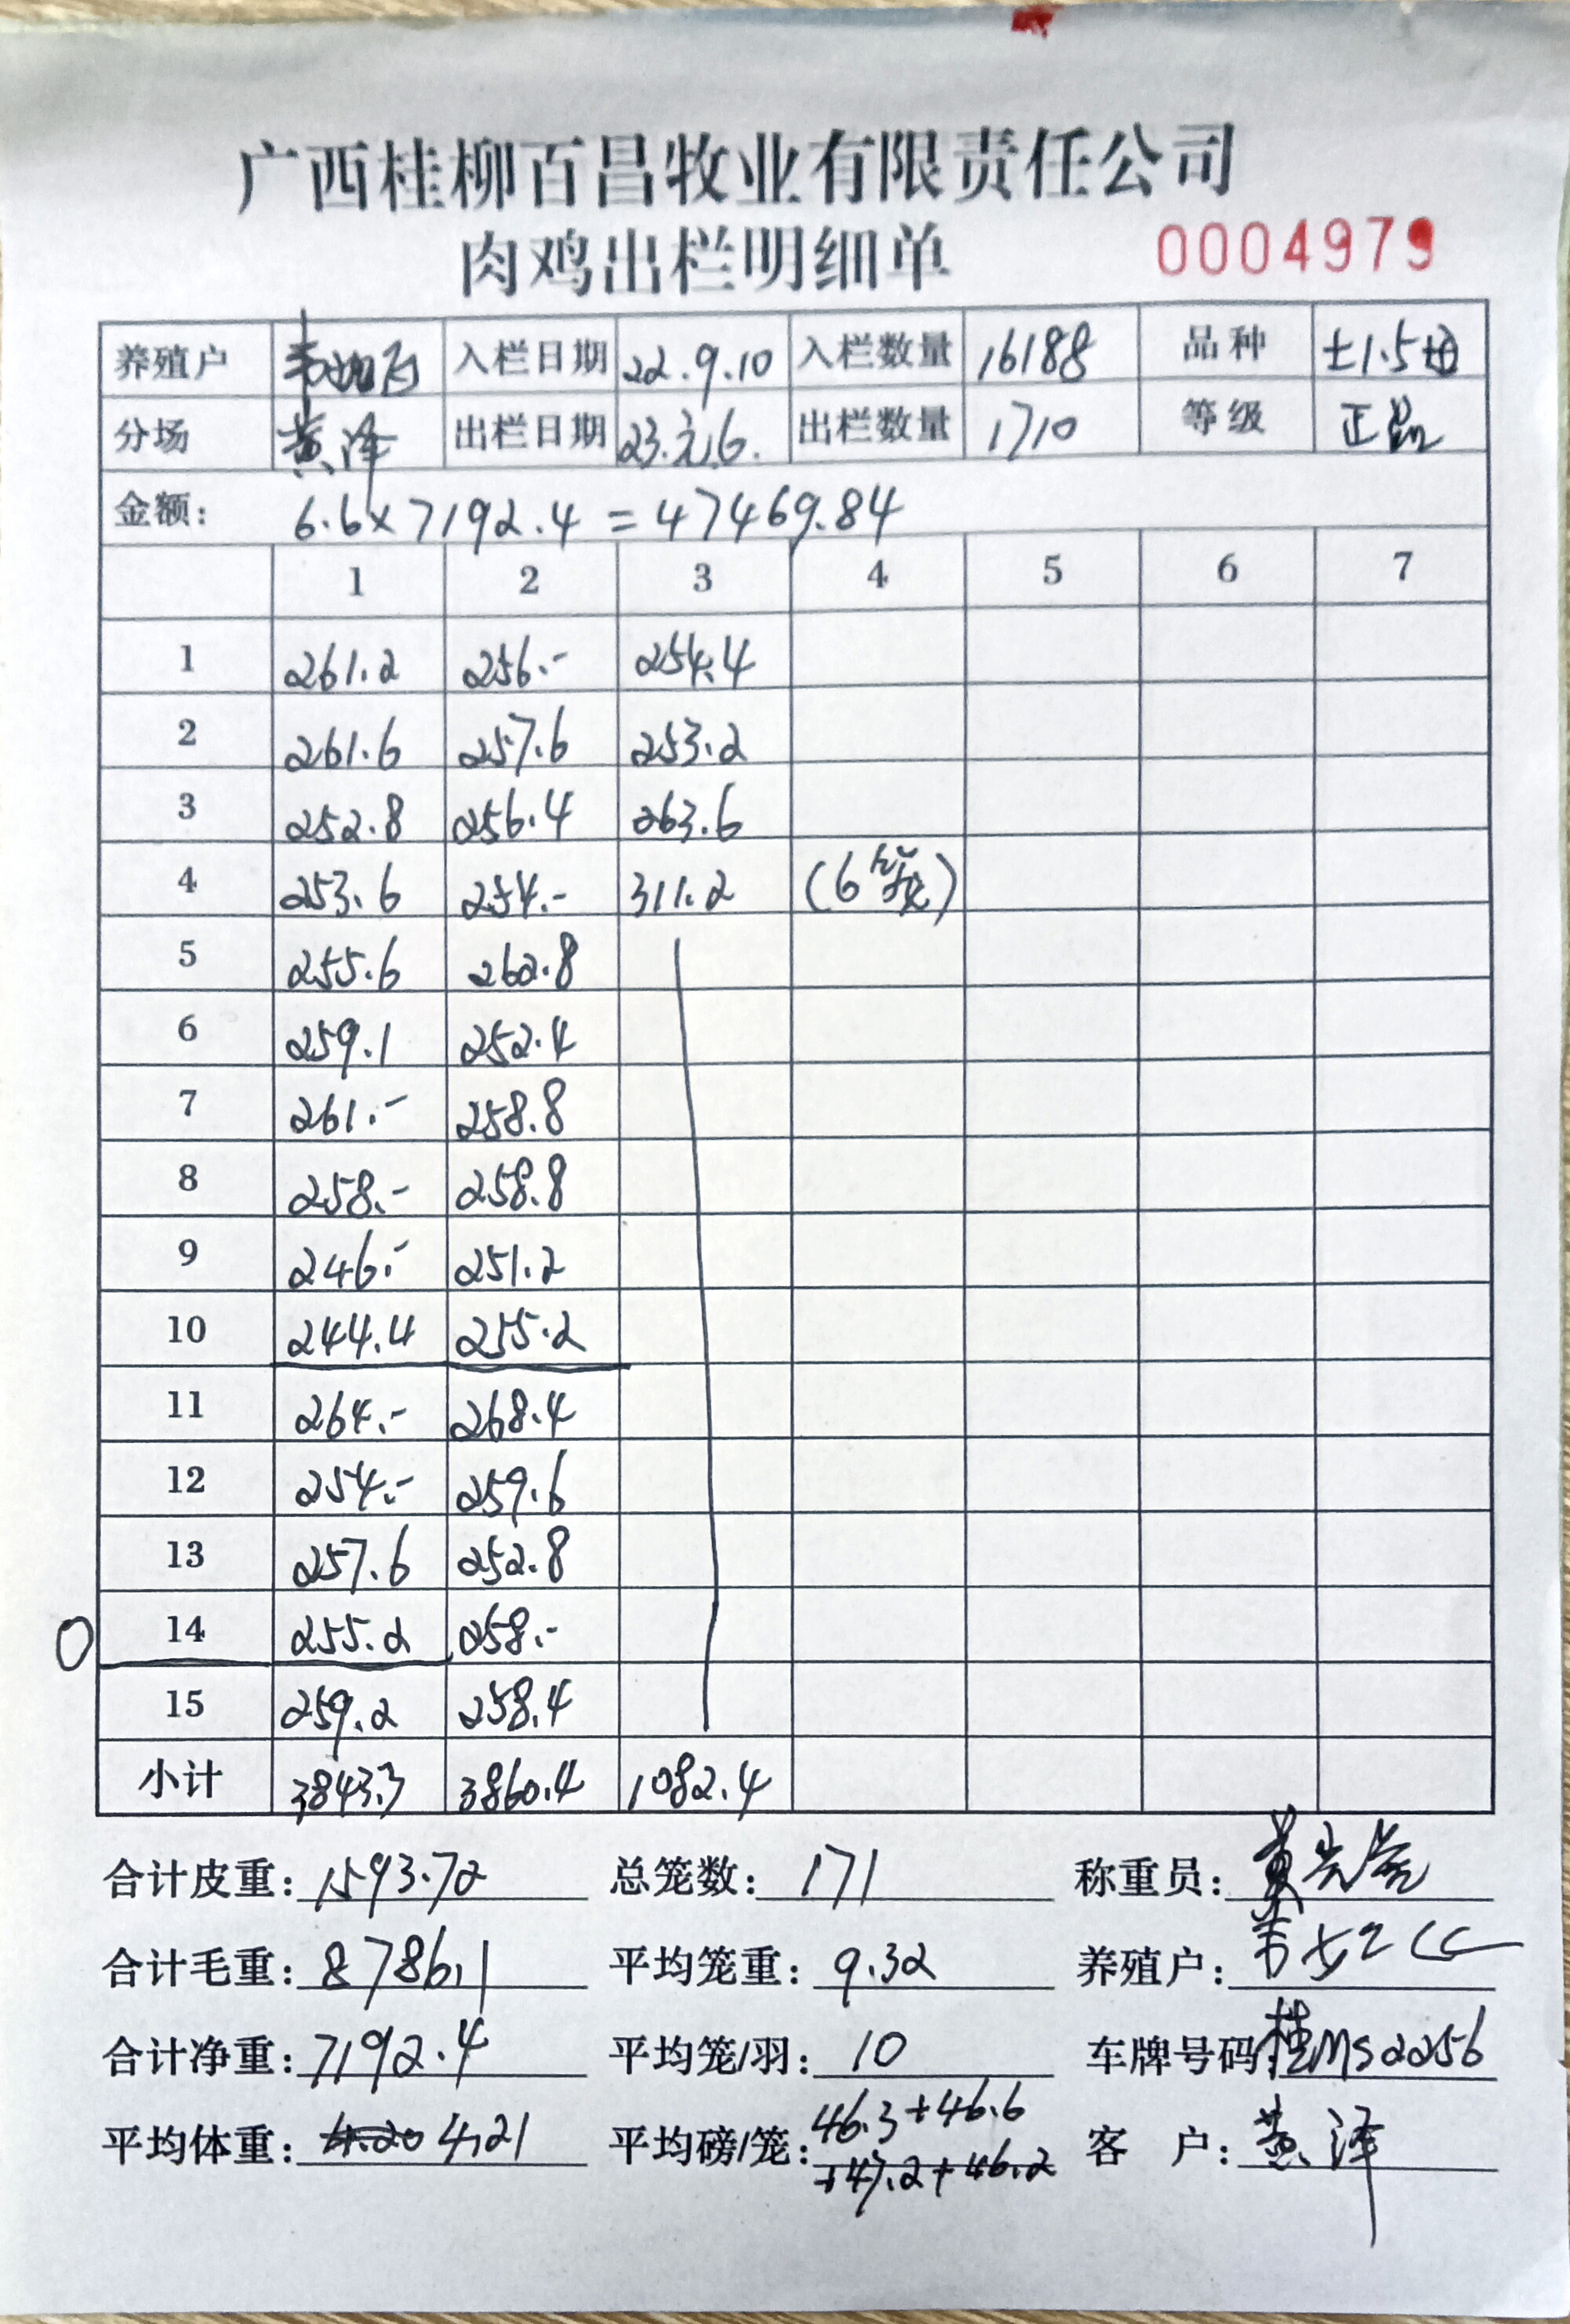 广西桂柳百昌牧业有限责任公司
肉鸡出栏明细单 0004979
养殖户 韦 入栏日期 22.9.10 入栏数量 16188 品种 土1.5母
分场 黄泽 出栏日期 23.元.6. 出栏数量 1710 等级 正品
金额: 6.6×7192.4=47469.84
1 2 3 4 5 6 7
1 261.2 256.- 254.4
2 261.6 257.6 253.2
3 252.8 256.4 263.6
4 253.6 254.- 311.2 (6笼)
5 255.6 262.8
6 259.1 252.4
7 261.- 258.8
8 258.- 258.8
9 246.- 251.2
10 244.4 255.2
11 264.- 268.4
12 254.- 259.6
13 257.6 252.8
0 14 255.2 258.-
15 259.2 258.4
小计 3843.3 3860.4 1082.4
合计皮重: 1593.72 总笼数: 171 称重员: 黄
合计毛重: 8786.1 平均笼重: 9.32 养殖户: 韦
合计净重: 7192.4 平均笼/羽: 10 车牌号码: 桂MS2256
平均体重: 4.20 4.21 平均磅/笼: 46.3+46.6 客 户: 黄泽
+47.2+46.2